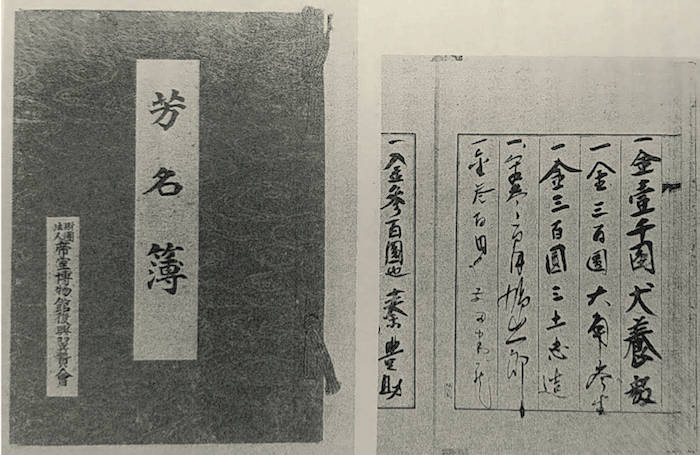 芳名簿
財團法人帝室博物館復興翼賛會
一金壹千圓犬養毅
一金三百圓大角岑生
一金三百圓三土忠造
一金参百円鳩山一郎
一金参百円
一金參百圓也秦豊助